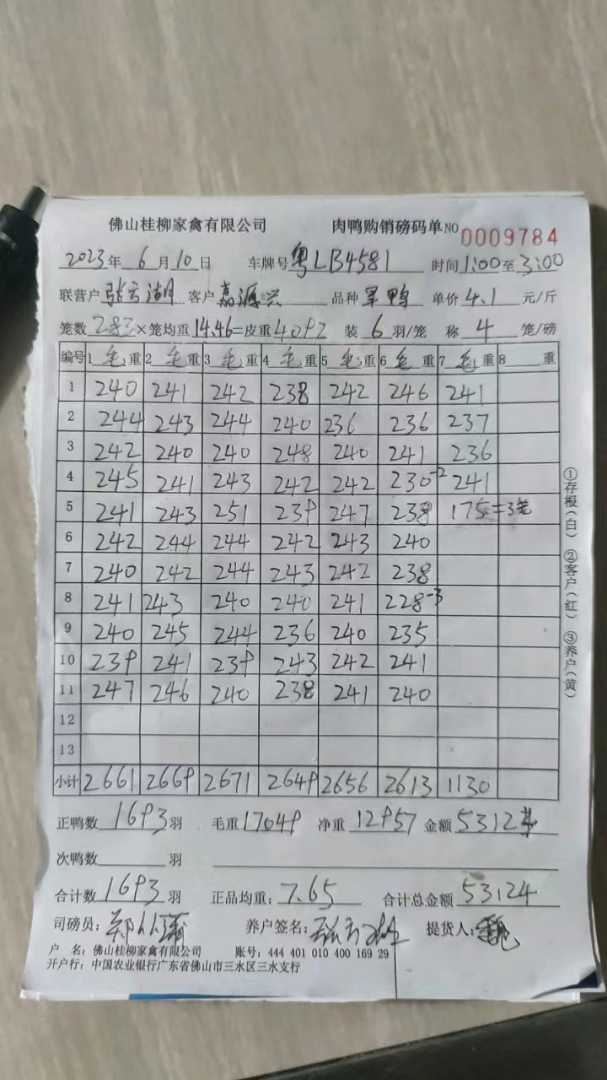 佛山桂柳家禽有限公司 肉鸭购销磅码单 NO 0009784
2023年 6月10日 车牌号 粤LB4581 时间 1:00至3:00
联营户 张云湖 客户 嘉源兴 品种 单价 4.1 元/斤
笼数 283×笼均重14.46=皮重4092 装 6 羽/笼 称 4 笼/磅
编号 1 毛重 2 毛重 3 毛重 4 毛重 5 毛重 6 毛重 7 毛重 8 重
1 240 241 242 238 242 246 241
2 244 243 244 240 236 236 237
3 242 240 240 248 240 241 236
4 245 241 243 242 242 230-2 241
5 241 243 251 239 247 238 175=3笼
6 242 244 244 242 243 240
7 240 242 244 243 242 238
8 241 243 240 240 241 228-3
9 240 245 244 236 240 235
10 239 241 239 243 242 241
11 247 246 240 238 241 240
12
13
小计 2661 2669 2671 2649 2656 2613 1130
正鸭数 1693 羽 毛重 17049 净重 12957 金额 53124
次鸭数 羽
合计数 1693 羽 正品均重: 7.65 合计总金额 53124
司磅员: 养户签名: 张云湖 提货人: 魏
户 名: 佛山桂柳家禽有限公司 账号: 444 401 010 400 169 29
开户行: 中国农业银行广东省佛山市三水区三水支行
①存根(白) ②客户(红) ③养户(黄)